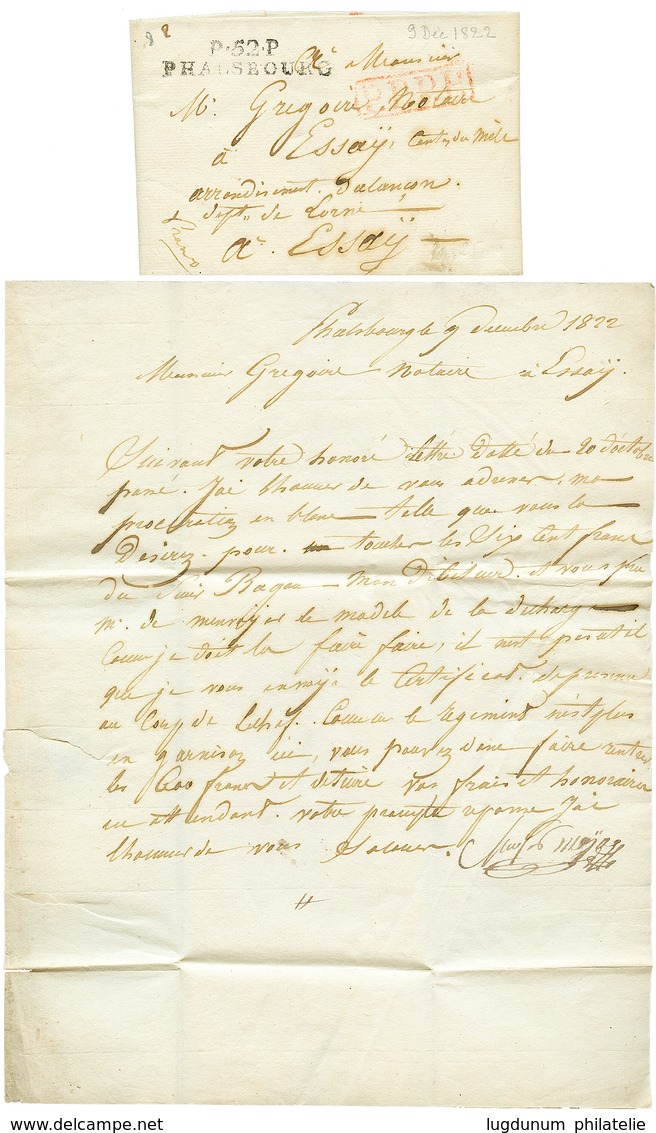 9 Déc 1822
P.52.P
PHALSBOURG
P.P.P.P.
A Monsieur
Mr Gregoire Notaire
à Essaÿ, Canton du Mele
arrondisement d'alançon.
dept de Lorne
franco
a Essaÿ
Phalsbourg le 9 decembre 1822
Monsieur Gregoire Notaire à Essaÿ.
Suivant votre honoré lettre datté du 20 doctobre
passé. J'ai lhonneur de vous adresser, ma
procuration en blanc telle que vous la
Desirez pour toucher les Six Cent franc
du Sieur Mon Debiteur. Et vous prie
Mr. de le model de la decharge
Comme je doit la faire faire, il nest pas util
que je vous envoÿe le Certificat de presence
au Corps de Comme le regiment nest plus
en garnison ici, vous pouvez donc faire rentrer
les 600 francs et deduire vos frais et honoraires
en attendant votre prompte reponse J'ai
lhonneur de vous Saluer.
www.delcampe.net
lugdunum philatelie